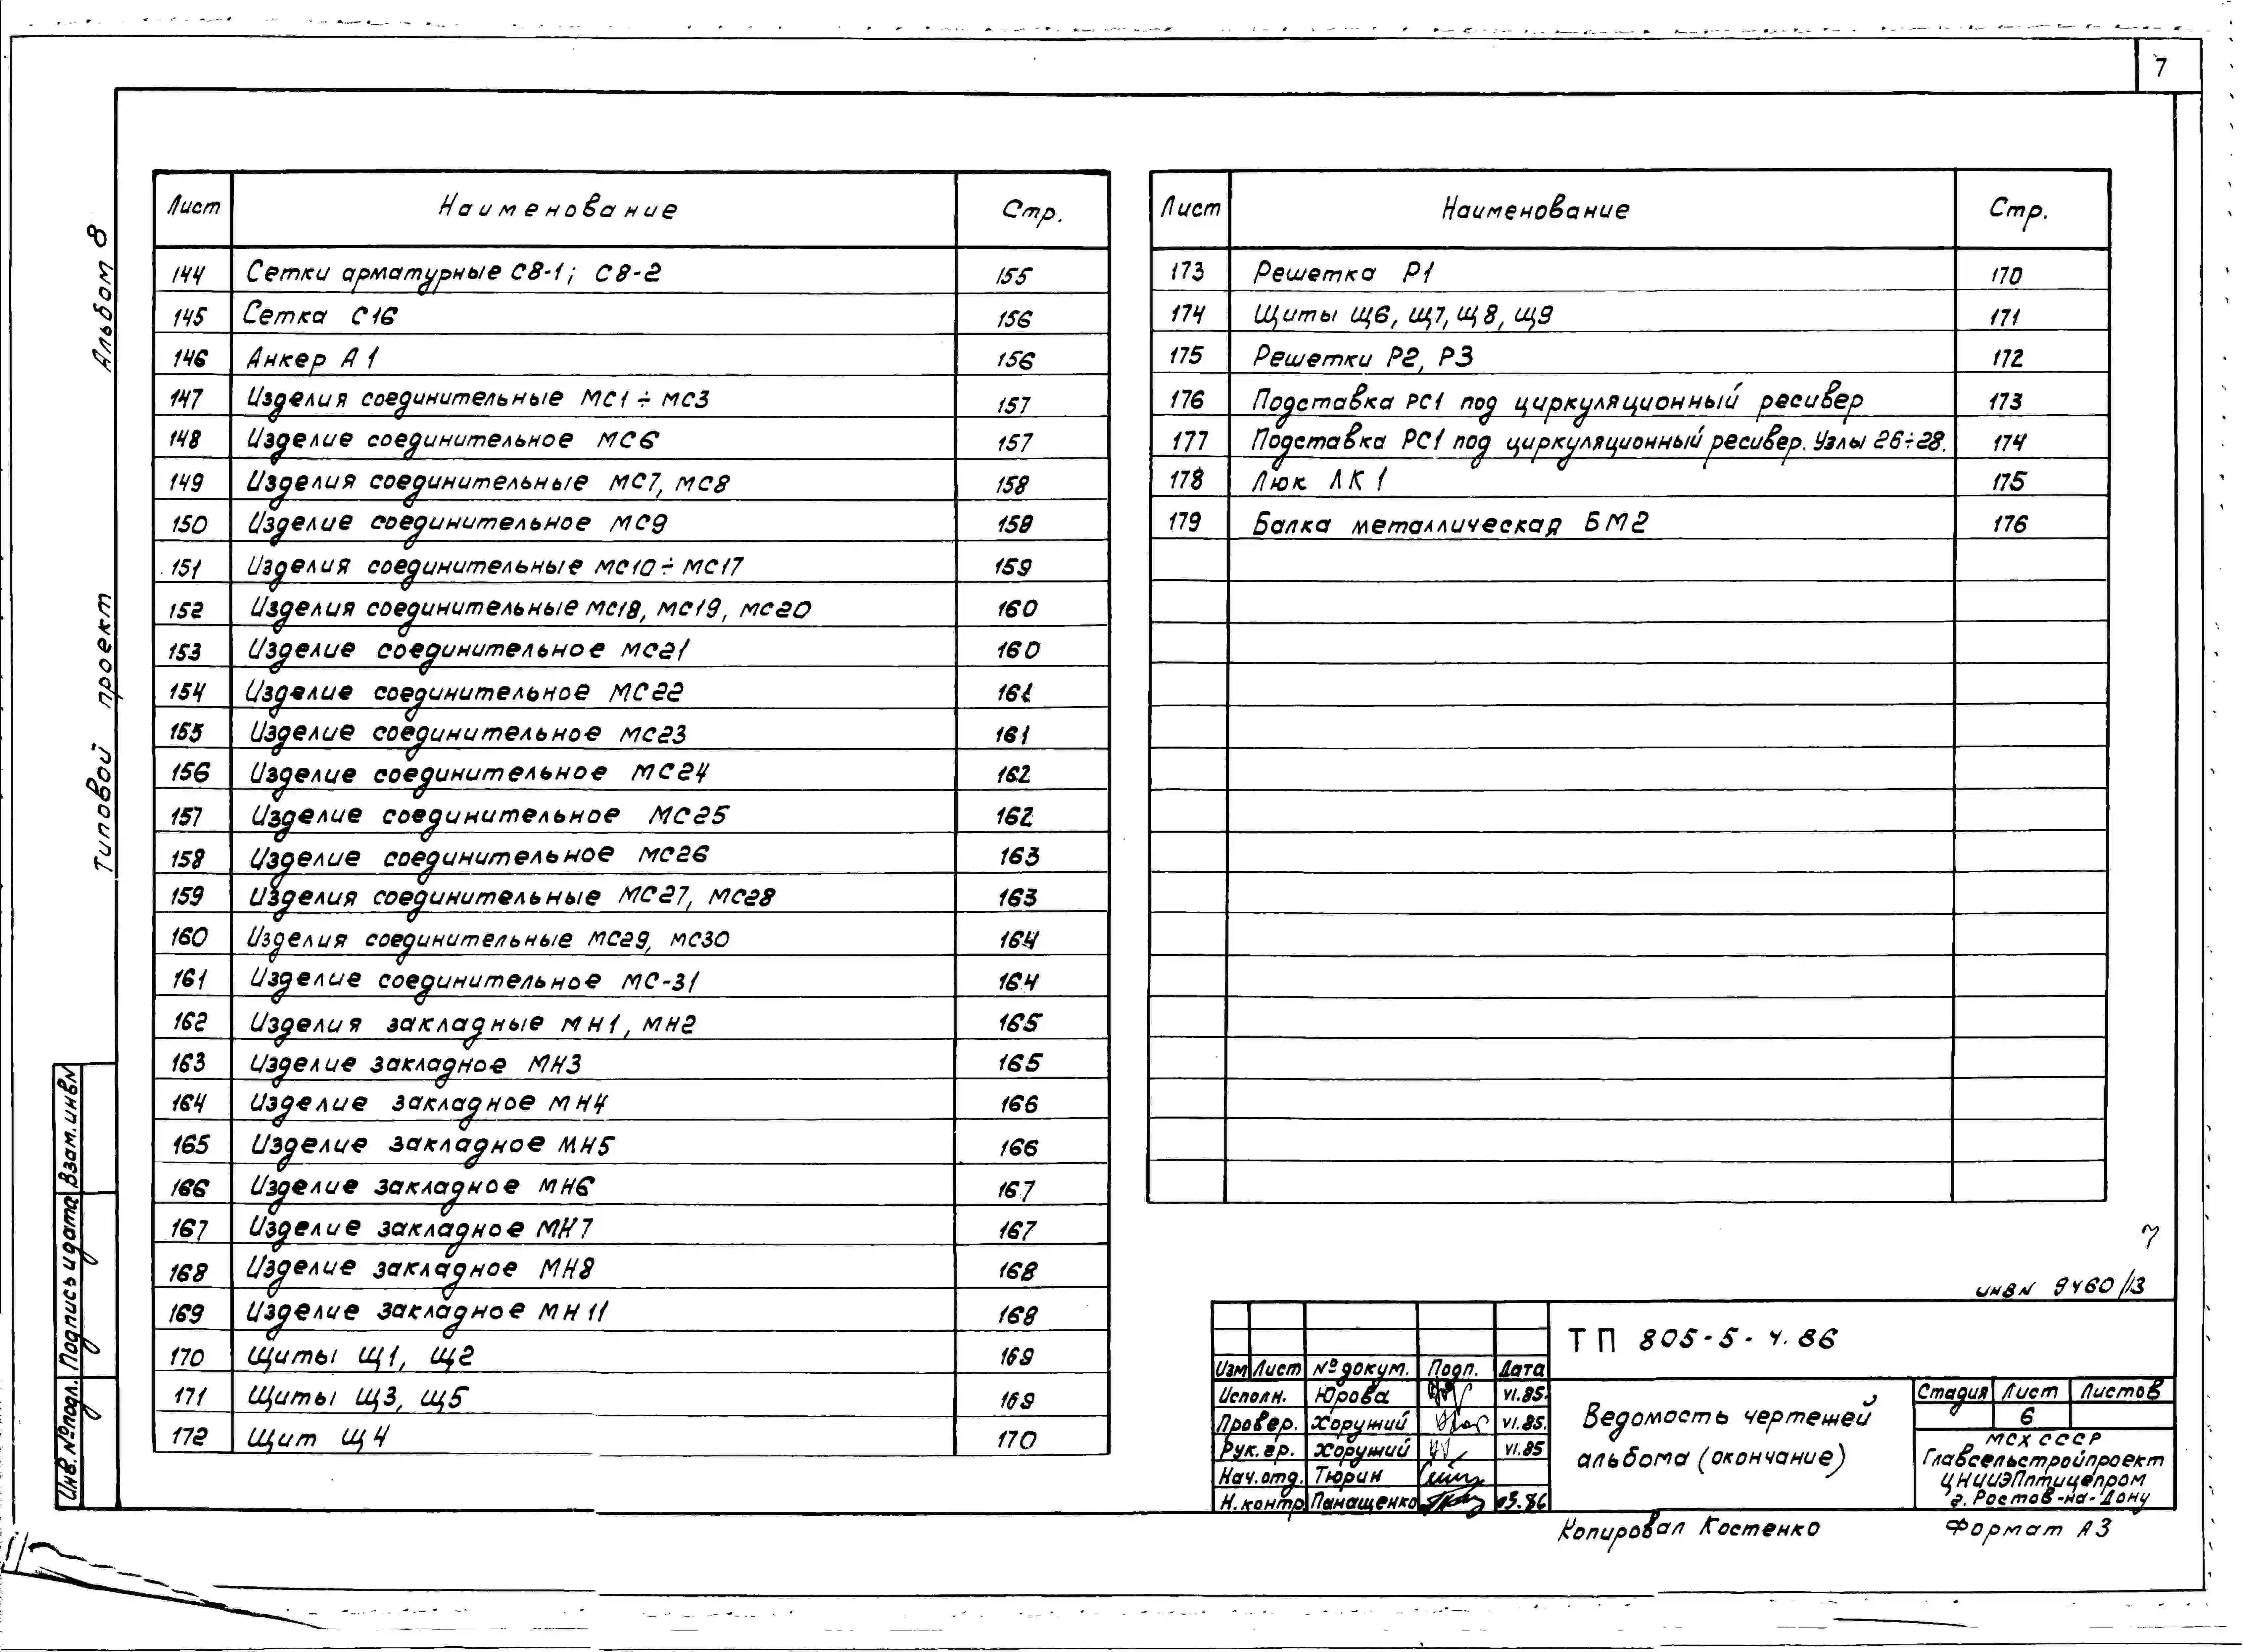 7
Альбом 8
Типовой проект
Лист Наименование Стр.
144 Сетки арматурные С8-1; С8-2 155
145 Сетка С16 156
146 Анкер А1 156
147 Изделия соединительные МС1÷МС3 157
148 Изделие соединительное МС6 157
149 Изделия соединительные МС7, МС8 158
150 Изделие соединительное МС9 158
151 Изделия соединительные МС10÷МС17 159
152 Изделия соединительные МС18, МС19, МС20 160
153 Изделие соединительное МС21 160
154 Изделие соединительное МС22 161
155 Изделие соединительное МС23 161
156 Изделие соединительное МС24 162
157 Изделие соединительное МС25 162
158 Изделие соединительное МС26 163
159 Изделия соединительные МС27, МС28 163
160 Изделия соединительные МС29, МС30 164
161 Изделие соединительное МС-31 164
162 Изделия закладные МН1, МН2 165
163 Изделие закладное МН3 165
164 Изделие закладное МН4 166
165 Изделие закладное МН5 166
166 Изделие закладное МН6 167
167 Изделие закладное МН7 167
168 Изделие закладное МН8 168
169 Изделие закладное МН11 168
170 Щиты Щ1, Щ2 169
171 Щиты Щ3, Щ5 169
172 Щит Щ4 170
Лист Наименование Стр.
173 Решетка Р1 170
174 Щиты Щ6, Щ7, Щ8, Щ9 171
175 Решетки Р2, Р3 172
176 Подставка РС1 под циркуляционный ресивер 173
177 Подставка РС1 под циркуляционный ресивер. Узлы 26÷28. 174
178 Люк ЛК1 175
179 Балка металлическая БМ2 176
Взам.инв№
Подпись и дата
Инв.№подл.
7
инв№ 9460/13
ТП 805-5-4.86
Изм Лист №докум. Подп. Дата
Исполн. Юрова VI.85.
Провер. Хоружий VI.85.
Рук.гр. Хоружий VI.85
Нач.отд. Тюрин
Н.контр Панащенко 03.86
Ведомость чертежей
альбома (окончание)
Стадия Лист Листов
6
МСХ СССР
Главсельстройпроект
ЦНИИЭПптицепром
г. Ростов-на-Дону
Копировал Костенко Формат А3